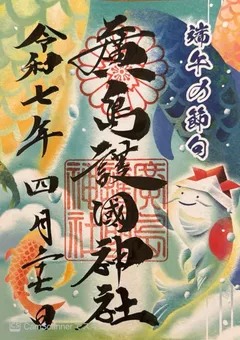 端午の節句
廣島護國神社
令和七年四月二十七日
廣島護國神社
CamScanner